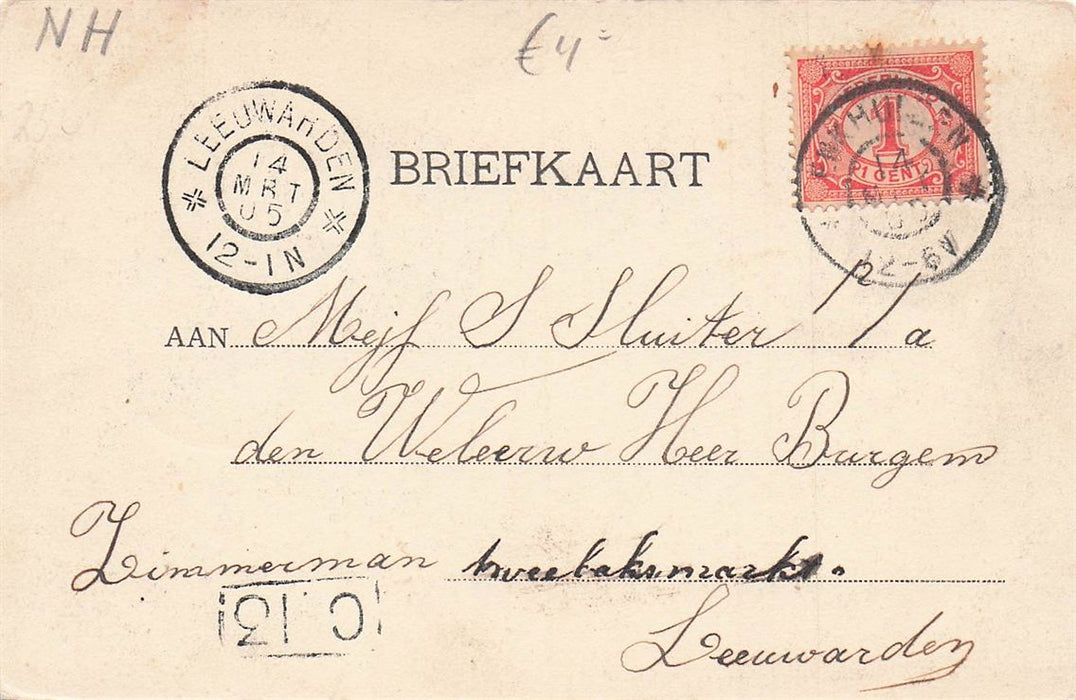 NH
€4=
LEEUWARDEN
14
MRT
05
12-1N
BRIEFKAART
1
1 CENT
ENKHUIZEN
14
12-6V
AAN Mejf S Sluiter p/a
den Weleerw Heer Burgem
Zimmerman tweebaksmarkt.
C 13
Leeuwarden